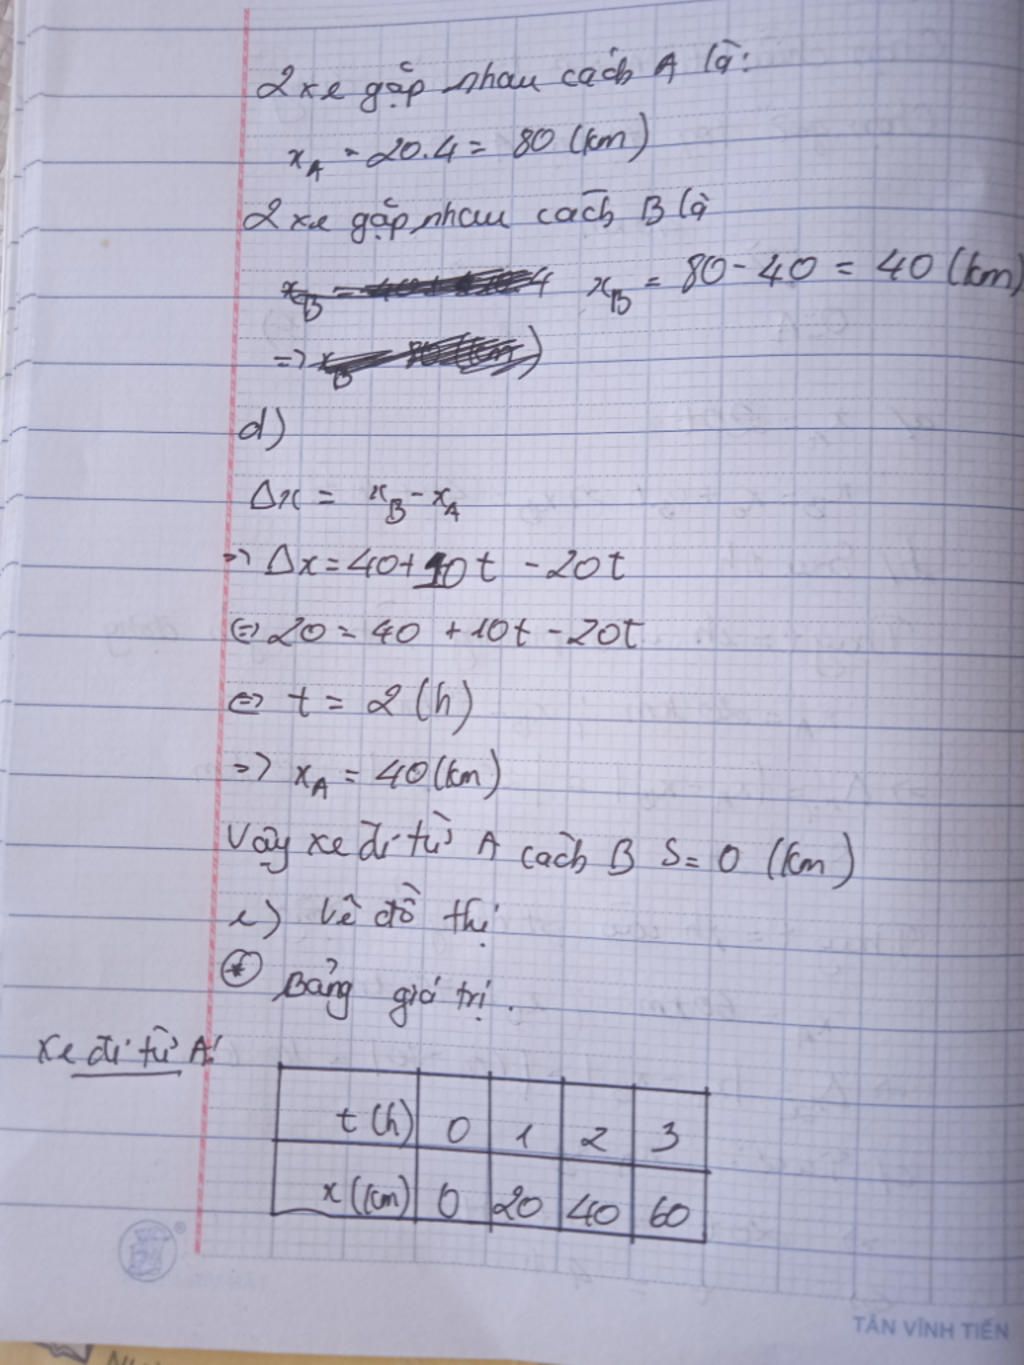 2 xe gặp nhau cách A là:
x_A = 20.4 = 80 (km)
2 xe gặp nhau cách B là
x_B = 80 - 40 = 40 (km)
d)
Δx = x_B - x_A
=> Δx = 40 + 10t - 20t
<=> 20 = 40 + 10t - 20t
<=> t = 2 (h)
=> x_A = 40 (km)
Vậy xe đi từ A cách B S = 0 (km)
e) Vẽ đồ thị
* Bảng giá trị.
Xe đi từ A:
t (h) 0 1 2 3
x (km) 0 20 40 60
TÂN VĨNH TIẾN